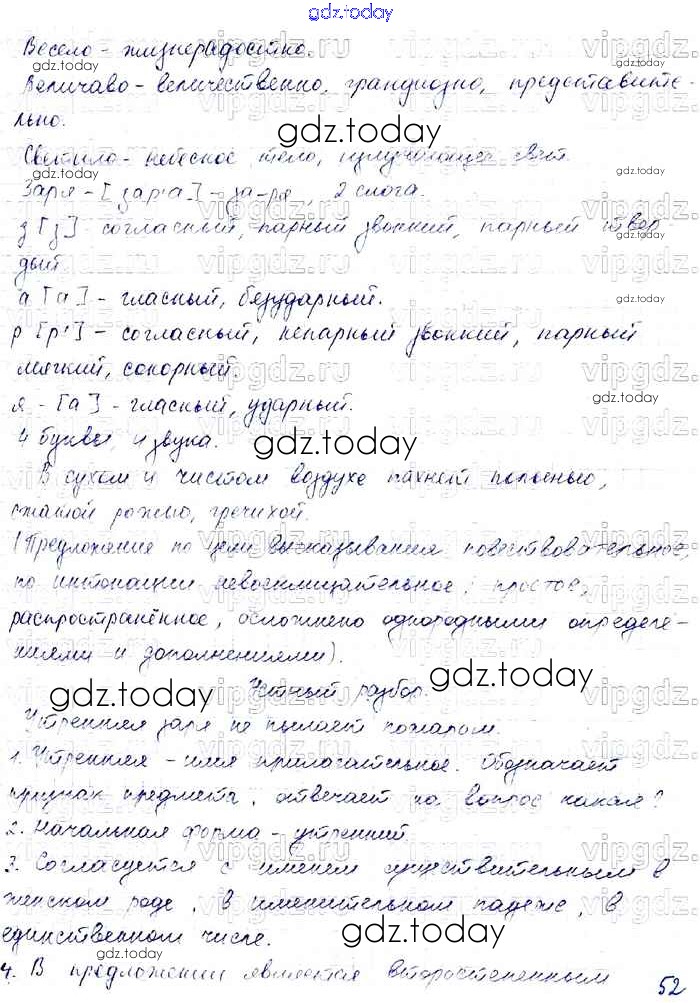 gdz.today
Весело - жизнерадостно.
Величаво - величественно, грандиозно, представите-
льно.
Светило - небесное тело, излучающее свет.
Заря - [зар'а] - за-ря, 2 слога.
з [з] - согласный, парный звонкий, парный твёр-
дый
а [а] - гласный, безударный.
р [р'] - согласный, непарный звонкий, парный
мягкий, сонорный.
я - [а] - гласный, ударный.
4 буквы, 4 звука.
В сухом и чистом воздухе пахнет полынью,
сжатой рожью, гречихой.
(Предложение по цели высказывания повествовательное,
по интонации невосклицательное, простое,
распространённое, осложнено однородными определе-
ниями и дополнениями).
Устный разбор.
Утренняя заря не пылает пожаром.
1. Утренняя - имя прилагательное. Обозначает
признак предмета, отвечает на вопрос какая?
2. Начальная форма - утренний.
3. Согласуется с именем существительным в
женском роде, в именительном падеже, в
единственном числе.
4. В предложении является второстепенным
52